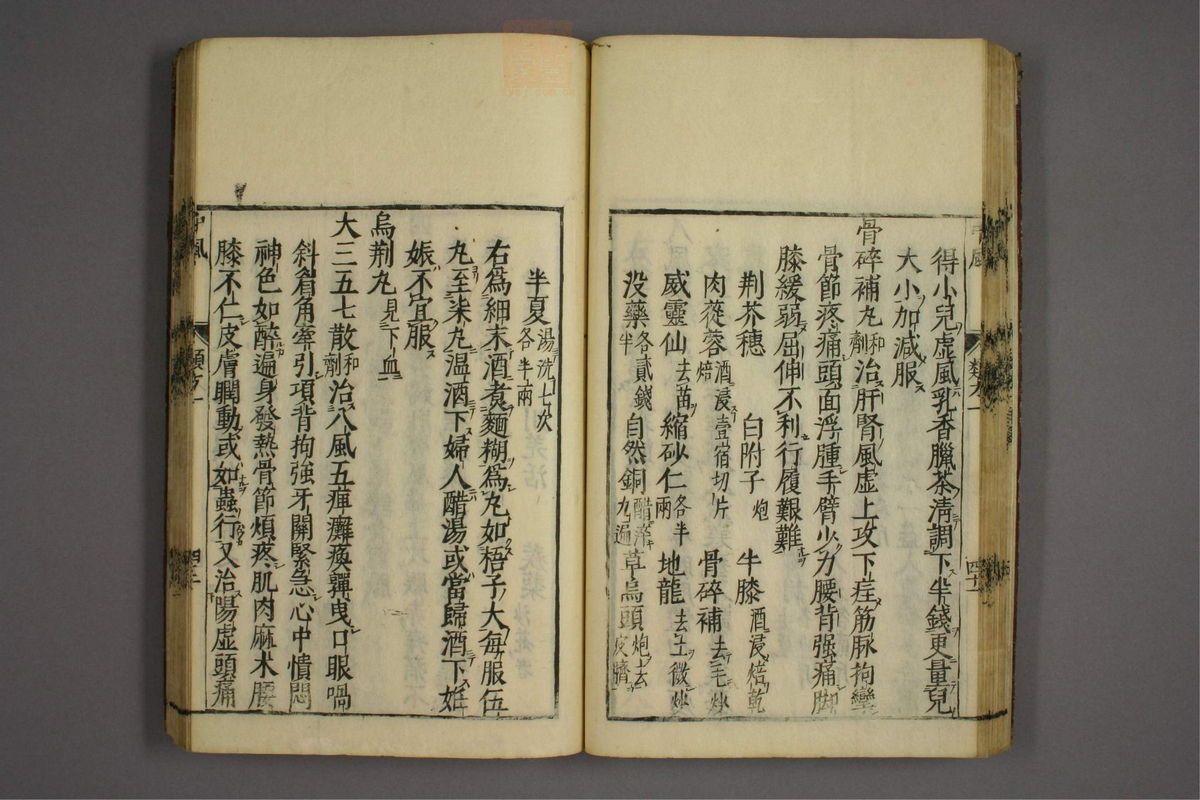 得小兒虛風乳香臘茶淸調下半錢更量兒
大小加減服
骨碎補丸和劑治肝腎風虛上攻下疰筋脉拘攣
骨節疼痛頭面浮腫手臂少力腰背强痛脚
膝緩弱屈伸不利行履艱難
荆芥穗 白附子炮 牛膝酒浸焙乾
肉蓯蓉酒浸壹宿切片焙 骨碎補去毛炒
威靈仙去苗 縮砂仁各半兩 地龍去土微炒
没藥各貳錢半 自然銅醋淬九遍 草烏頭炮去皮臍
中風
類方一
四十二
半夏湯洗七次各半兩
右爲細末酒煮麵糊爲丸如梧子大每服伍
丸至柒丸温酒下婦人醋湯或當歸酒下妊
娠不宜服
烏荆丸見下血
大三五七散和劑治八風五痺癱瘓嚲曳口眼喎
斜眉角牽引項背拘強牙關緊急心中憒悶
神色如醉遍身發熱骨節煩疼肌肉麻木腰
膝不仁皮膚瞤動或如蟲行又治陽虛頭痛
中風
類方一
四十三